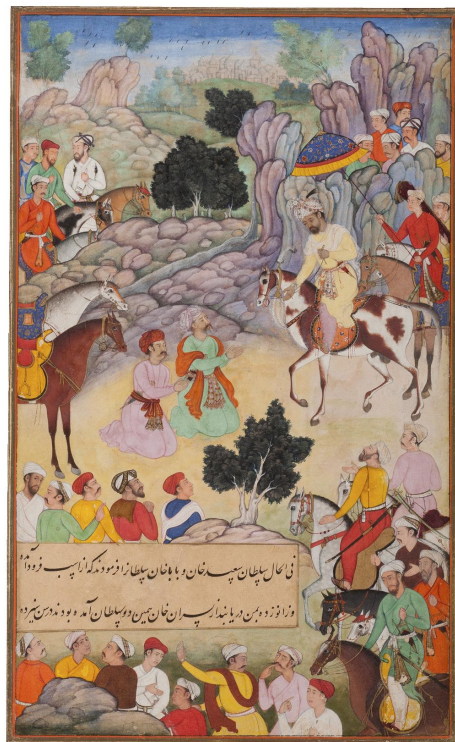 فی الحال سلطان سعید خان و بابا خان سلطانرا فرمودند که از اسپ فرود آمده
و زانو زده بمن دریابند از پسران خان همین دو سلطان آمده بودند در سن سیزده